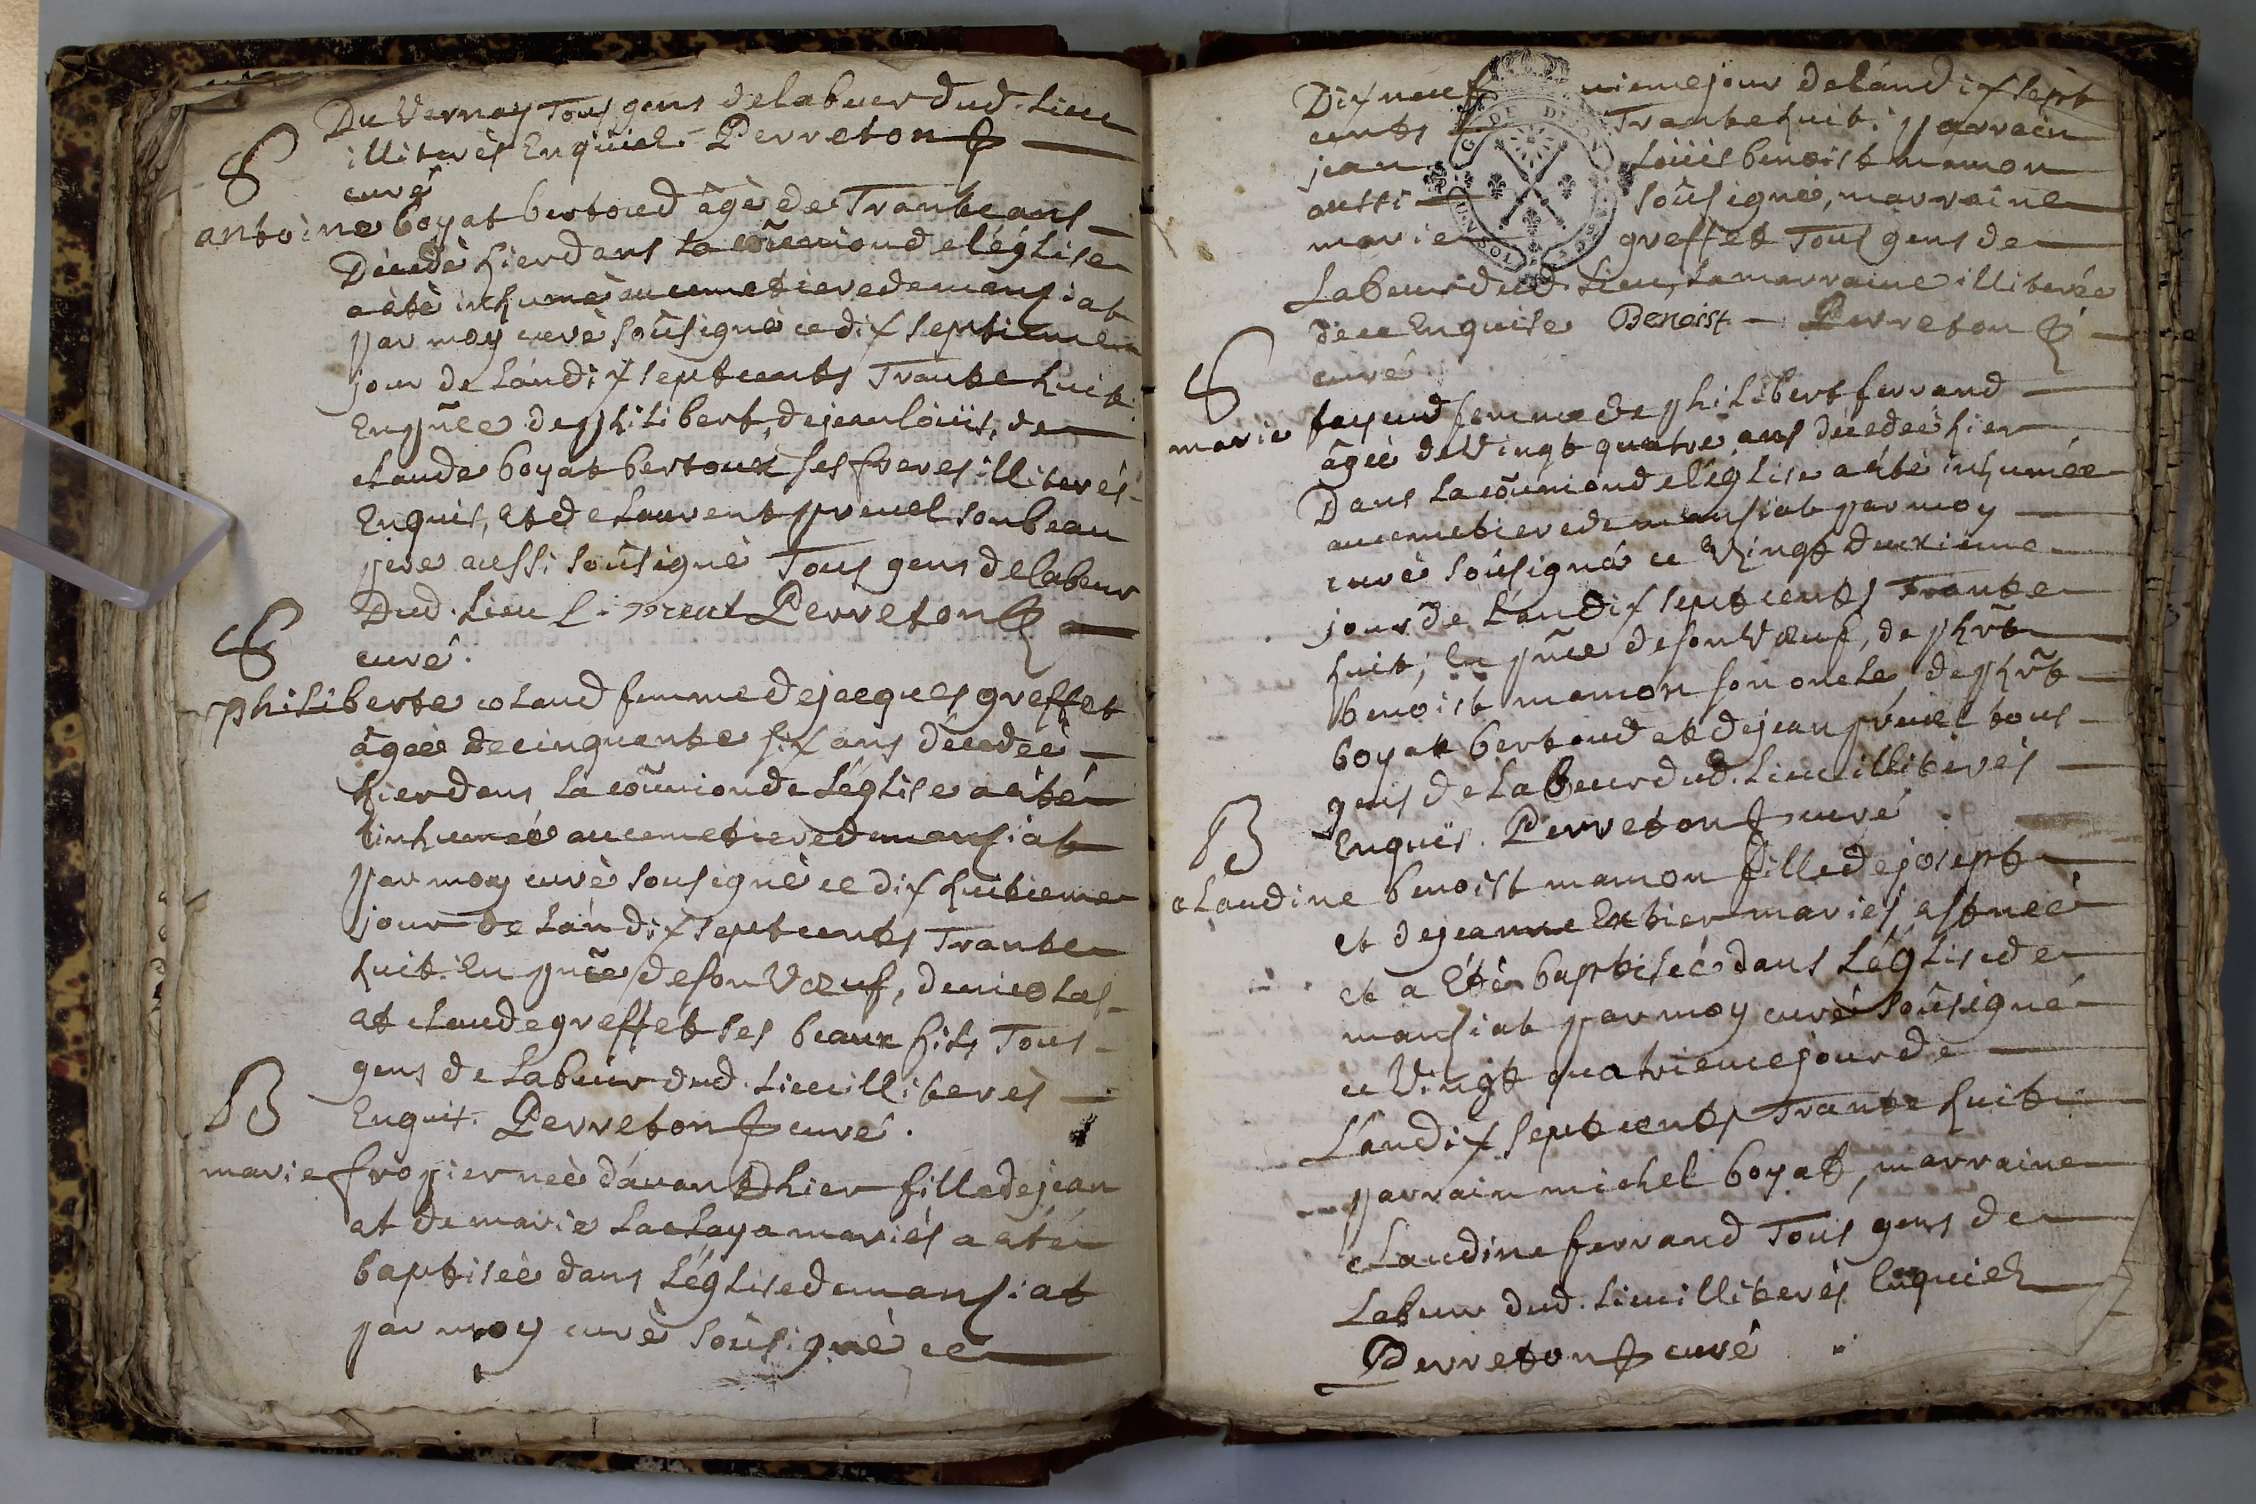 Du Vernay Tous gens de labeur dud. Lieu
illiterès Enquiel. Perreton
curé
S
antoine boyat bertoud âgè de Trante ans
Dècedè hier dans la coũnion de l'église
a étè inhumè au cemetiere de mansiat
par moy curè soûsignè ce dix septieme
jour de L'an dix sept cents Trante huit.
En pñce de philibert, de jean loüis, de
claude boyat bertoux ses freres illiterés
Enquis, et de Laurent preuel son beau
pere aussi soûsignè Tous gens de labeur
Dud. Lieu L. preuel Perreton
curé.
S
philiberte coland femme de jacques greffet
âgeè de cinquante six ans décedeè
hier dans La coũnion de L'église a été
inhumeé au cemetiere de mansiat
par moy curè sousignè ce dix huitieme
jour de L'an dix sept cents Trante
huit. En pñce de son Vœuf, de nicolas
et claude greffet ses beaux fils Tous
gens de Labeur dud. Lieu illiterès
Enquis. Perreton curé.
B
marie fropier neè d'auant hier fille de jean
et de marie Laclaya mariés a été
baptiseè dans L'église de mansiat
par moy curè soûsignè ce
Dix neuf uieme jour de L'an dix sept
cents Trante huit. parrain
jean Loüis benoist mamon
aussi soûsigné, marraine
marie greffet Tous gens de
Labeur dud. Lieu, La marraine illiterée
de ce Enquise Benoist Perreton
curé
G. DE DIJON
S
marie fayend femme de philibert ferrand
âgeè de Vingt quatre ans décedeè hier
Dans La coũnion de l'église a été inhumée
au cemetiere de mansiat par moy
curè soûsigné ce Vingt deuxieme
jour de L'an dix sept cents Trante
huit, En pñce de son Vœuf, de phr̃t
benoist mamon son oncle, de phr̃t
boyat bertoud et de jean preuel tous
gens de Labeur dud. Lieu illiterés
Enquis. Perreton curé
B
claudine benoist mamon fille de josept
et de jeanne Extier mariés est neé
et a Eté baptiseé dans L'église de
mansiat par moy curé soûsigné
ce Vingt quatrieme jour de
L'an dix sept cents Trante huit
parrain michel boyat, marraine
claudine ferrand Tous gens de
Labeur dud. Lieu illiterés Enquiels
Perreton curé